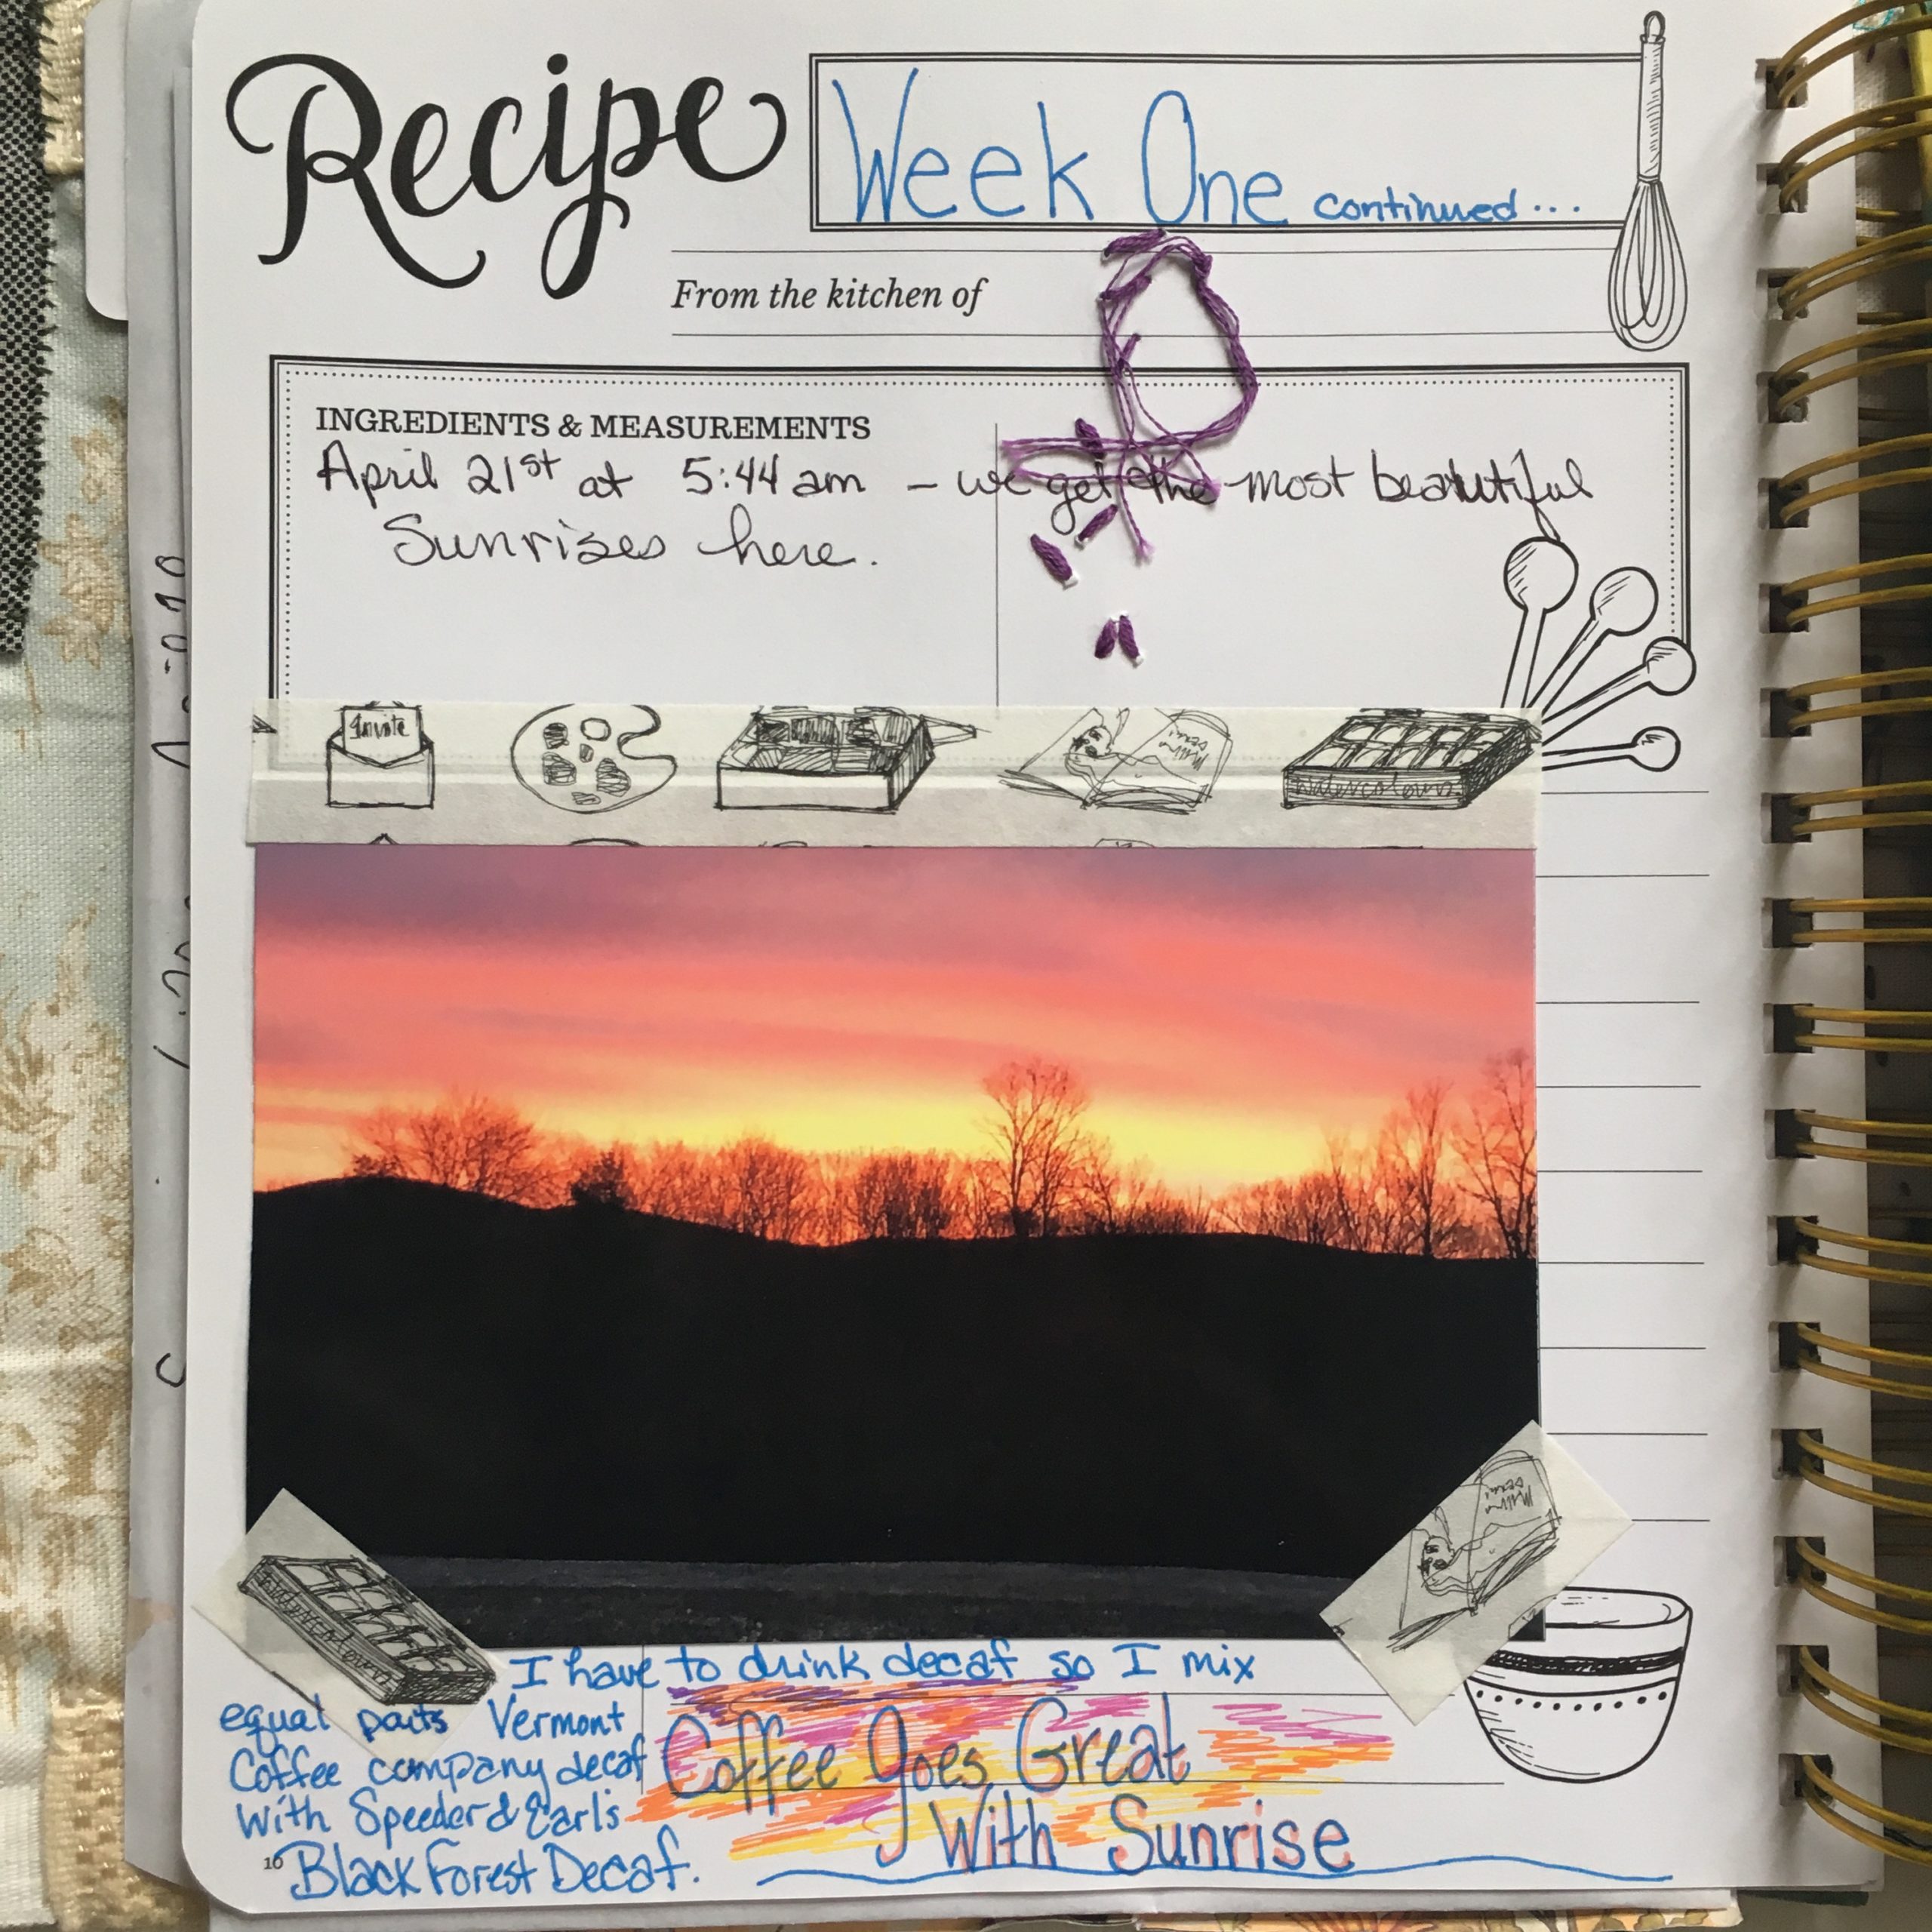 Recipe
Week One continued...
From the kitchen of
INGREDIENTS & MEASUREMENTS
April 21st at 5:44 am - we get the most beautiful
Sunrises here.
Invite
watercolours
watercolours
I have to drink decaf so I mix
equal parts Vermont
Coffee company decaf
with Speeder & Earl's
Black Forest Decaf.
Coffee goes Great
With Sunrise
10